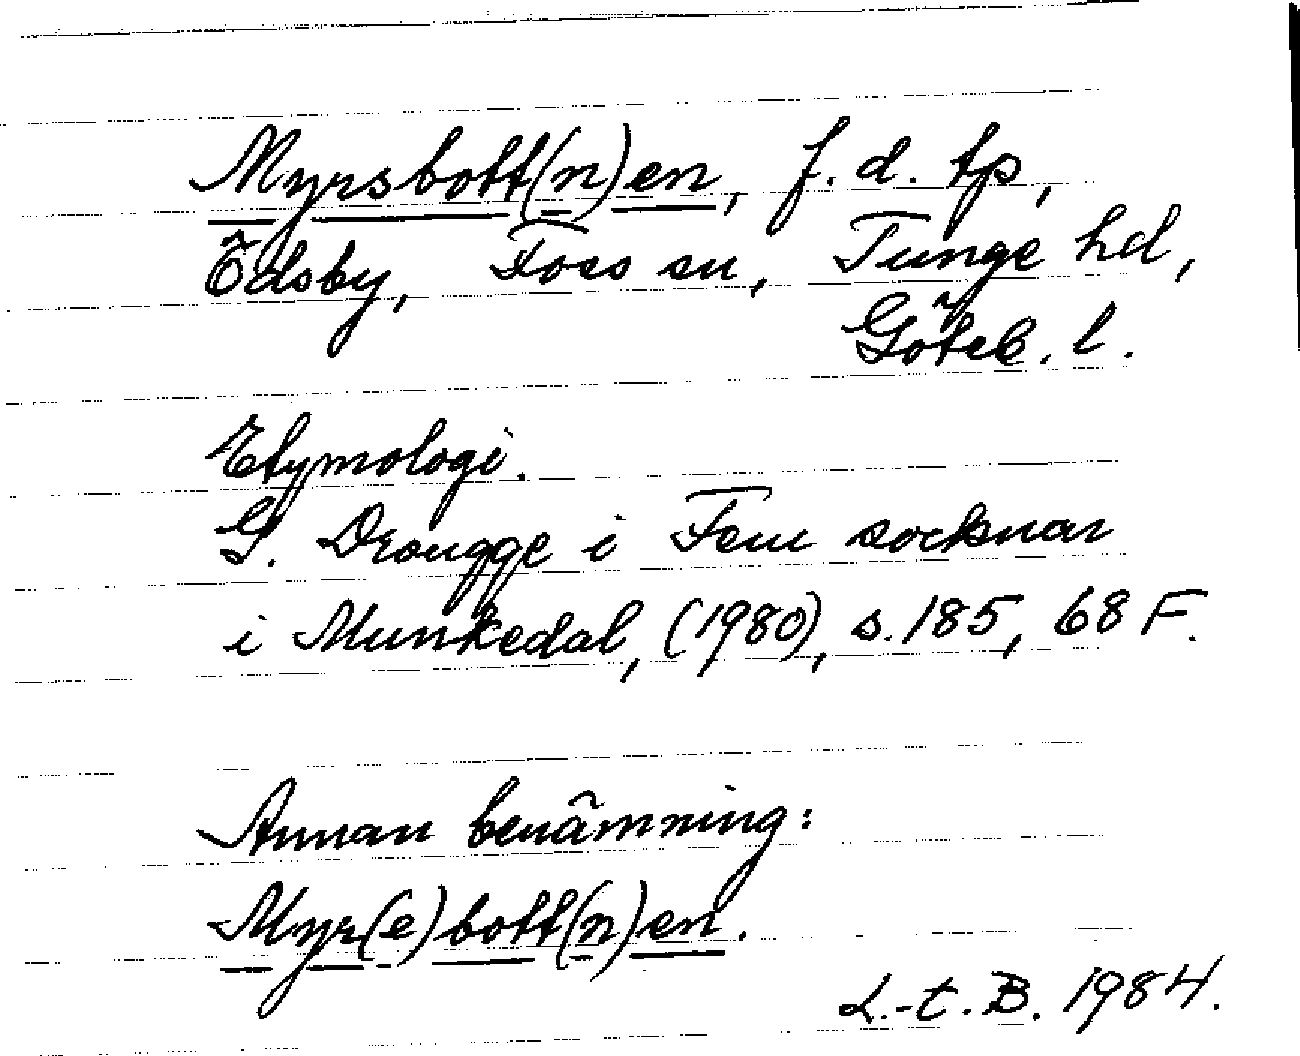 Myrsbott(n)en, f.d. tp,
Ödsby, Foss sn, Tunge hd,
Göteb. l.
Etymologi.
G. Drougge i Fem socknar
i Munkedal, (1980), s.185, 68 F.
Annan benämning:
Myr(e)bott(n)en.
L.-t. B. 1984.